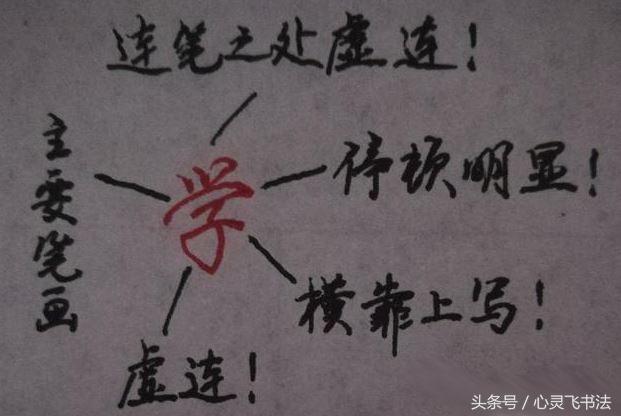 连笔之处虚连！
主要笔画
学
停顿明显！
横靠上写！
虚连！
头条号 / 心灵飞书法